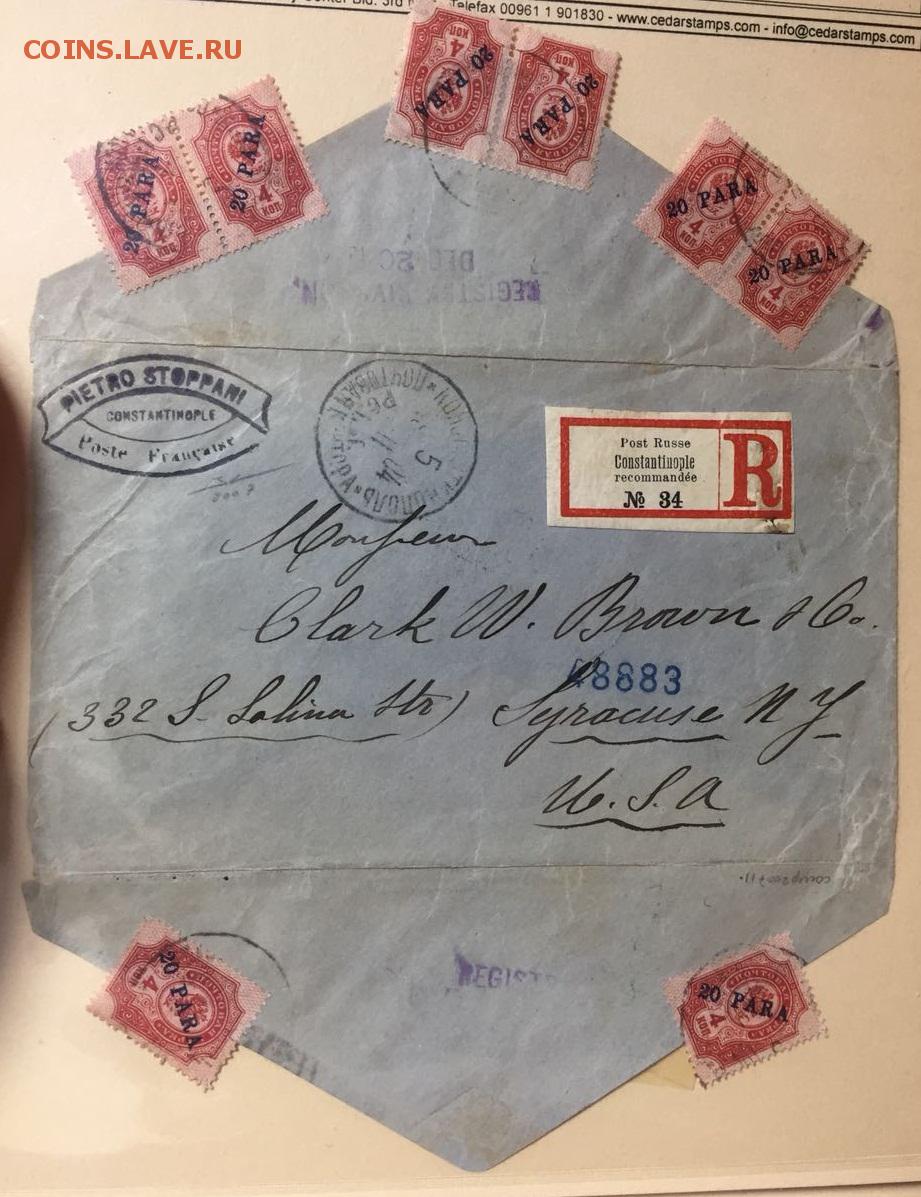 Telefax 00961 1 901830 - www.cedarstamps.com - info@cedarstamps.com
COINS.LAVE.RU
4 КОП 20 PARA
4 КОП 20 PARA
20 PARA 4 КОП
20 PARA 4 КОП
20 PARA 4 КОП
20 PARA 4 КОП
PIETRO STOPPANI
CONSTANTINOPLE
Poste Française
5
11
04
Post Russe
Constantinople
recommandée
№ 34
R
Monsieur
Clark W. Brown & Co.
48883
(332 S. Salina Str) Syracuse N Y
U. S. A
REGISTR
20 PARA 4 КОП
20 PARA 4 КОП